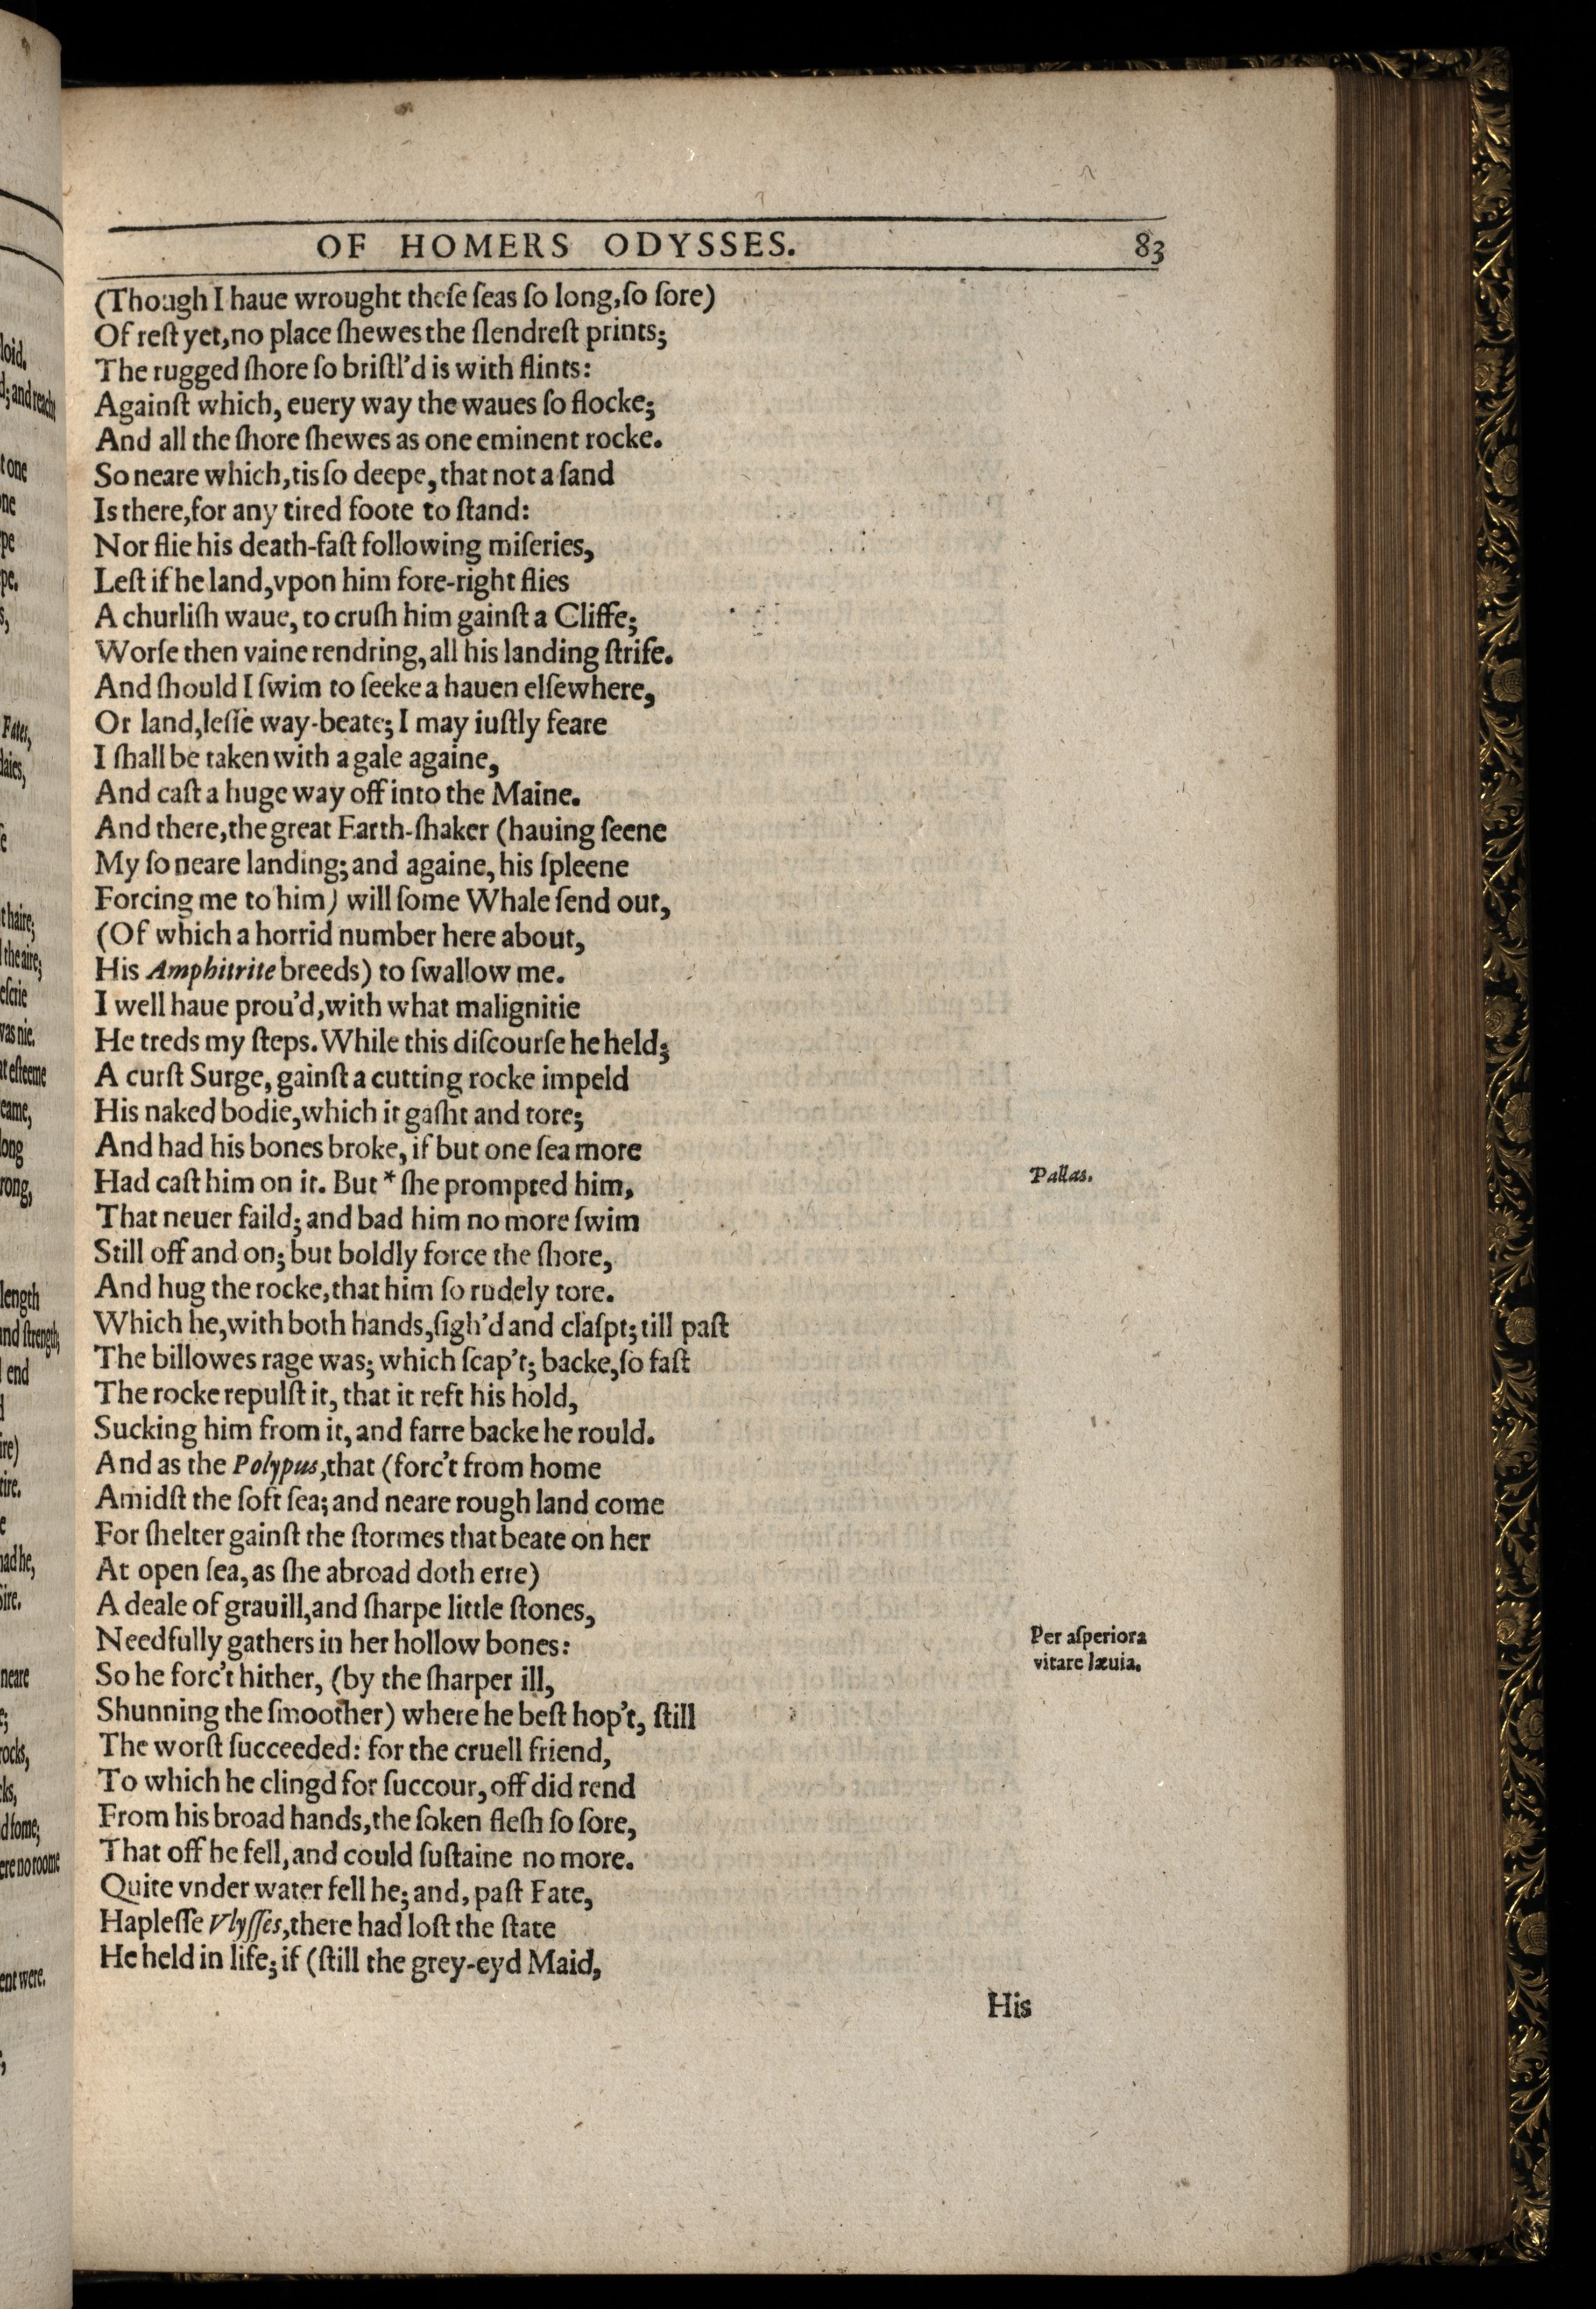 OF HOMERS ODYSSES. 83
(Though I haue wrought theſe ſeas ſo long, ſo ſore)
Of reſt yet, no place ſhewes the ſlendreſt prints;
The rugged ſhore ſo briſtl'd is with flints:
Againſt which, euery way the waues ſo flocke;
And all the ſhore ſhewes as one eminent rocke.
So neare which, tis ſo deepe, that not a ſand
Is there, for any tired foote to ſtand:
Nor flie his death-faſt following miſeries,
Leſt if he land, vpon him fore-right flies
A churliſh waue, to cruſh him gainſt a Cliffe;
Worſe then vaine rendring, all his landing ſtrife.
And ſhould I ſwim to ſeeke a hauen elſewhere,
Or land, leſſe way-beate; I may iuſtly feare
I ſhall be taken with a gale againe,
And caſt a huge way off into the Maine.
And there, the great Earth-ſhaker (hauing ſeene
My ſo neare landing; and againe, his ſpleene
Forcing me to him) will ſome Whale ſend out,
(Of which a horrid number here about,
His Amphitrite breeds) to ſwallow me.
I well haue prou'd, with what malignitie
He treds my ſteps. While this diſcourſe he held;
A curſt Surge, gainſt a cutting rocke impeld
His naked bodie, which it gaſht and tore;
And had his bones broke, if but one ſea more
Had caſt him on it. But * ſhe prompted him,
Pallas.
That neuer faild; and bad him no more ſwim
Still off and on; but boldly force the ſhore,
And hug the rocke, that him ſo rudely tore.
Which he, with both hands, ſigh'd and claſpt; till paſt
The billowes rage was; which ſcap't; backe, ſo faſt
The rocke repulſt it, that it reft his hold,
Sucking him from it, and farre backe he rould.
And as the Polypus, that (forc't from home
Amidſt the ſoft ſea; and neare rough land come
For ſhelter gainſt the ſtormes that beate on her
At open ſea, as ſhe abroad doth erre)
A deale of grauill, and ſharpe little ſtones,
Needfully gathers in her hollow bones:
Per aſperiora
vitare læuia.
So he forc't hither, (by the ſharper ill,
Shunning the ſmoother) where he beſt hop't, ſtill
The worſt ſucceeded: for the cruell friend,
To which he clingd for ſuccour, off did rend
From his broad hands, the ſoken fleſh ſo ſore,
That off he fell, and could ſuſtaine no more.
Quite vnder water fell he; and, paſt Fate,
Hapleſſe Vlyſſes, there had loſt the ſtate
He held in life; if (ſtill the grey-eyd Maid,
His